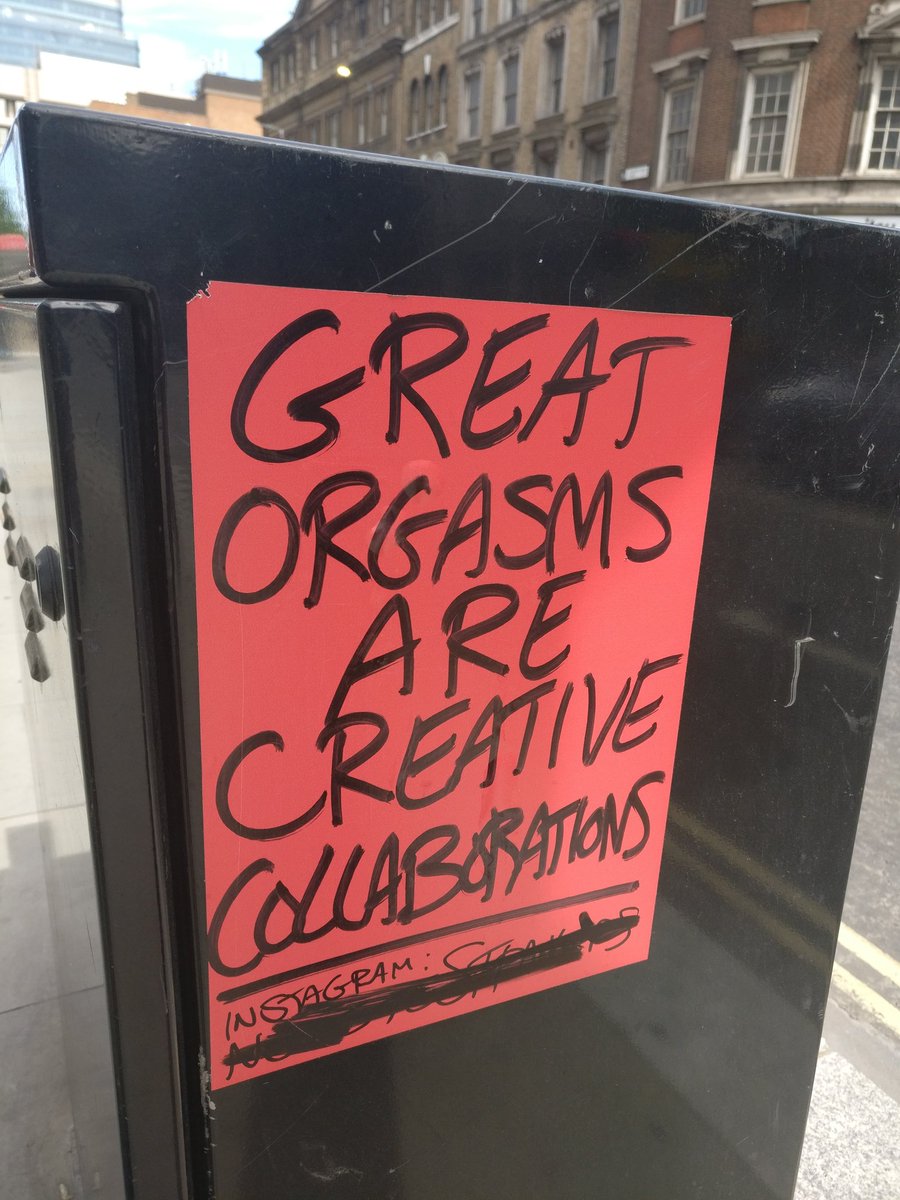 GREAT
ORGASMS
ARE
CREATIVE
COLLABORATIONS
INSTAGRAM: